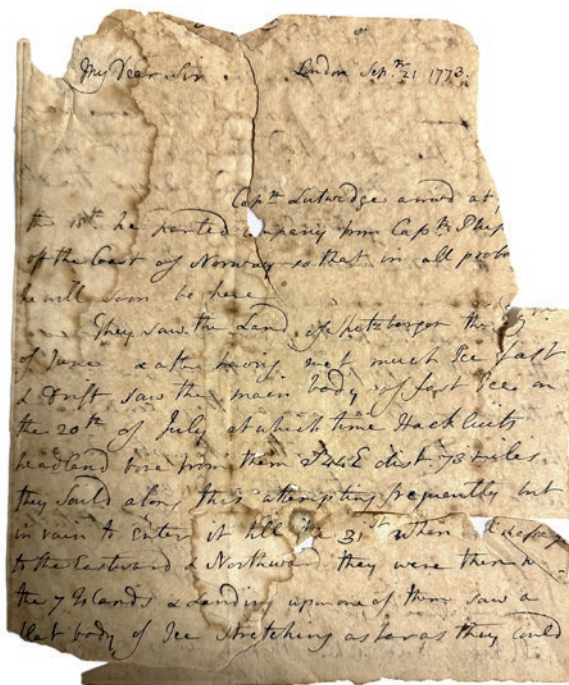 My Dear Sir London Sepr. 21 1773.
Captn Lutwidge arrivd at
the 18th he parted company from Captn Phip
of the Coast of Norway so that in all proba
he will soon be here
They saw the Land of Spitzbergen the
of June & after having met much Ice fast
& Drift saw the main body of fast Ice on
the 20th of July at which time Hackluits
headland bore from them dist. 73 miles
they saild along this attempting frequently but
in vain to enter it till the 31st when
to the Eastward & Northward they were then
the 7 Islands & Landing upon one of them saw a
flat body of Ice stretching as far as they could